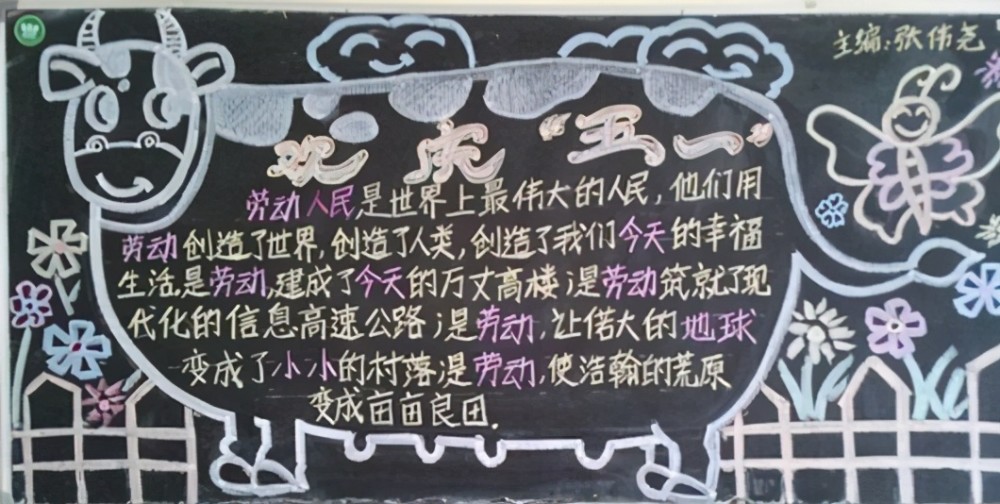 主编:张伟尧
欢 庆 “五一”
劳动人民是世界上最伟大的人民,他们用
劳动创造了世界,创造了人类,创造了我们今天的幸福
生活.是劳动,建成了今天的万丈高楼;是劳动筑就了现
代化的信息高速公路;是劳动,让偌大的地球
变成了小小的村落;是劳动,使浩翰的荒原
变成亩亩良田.